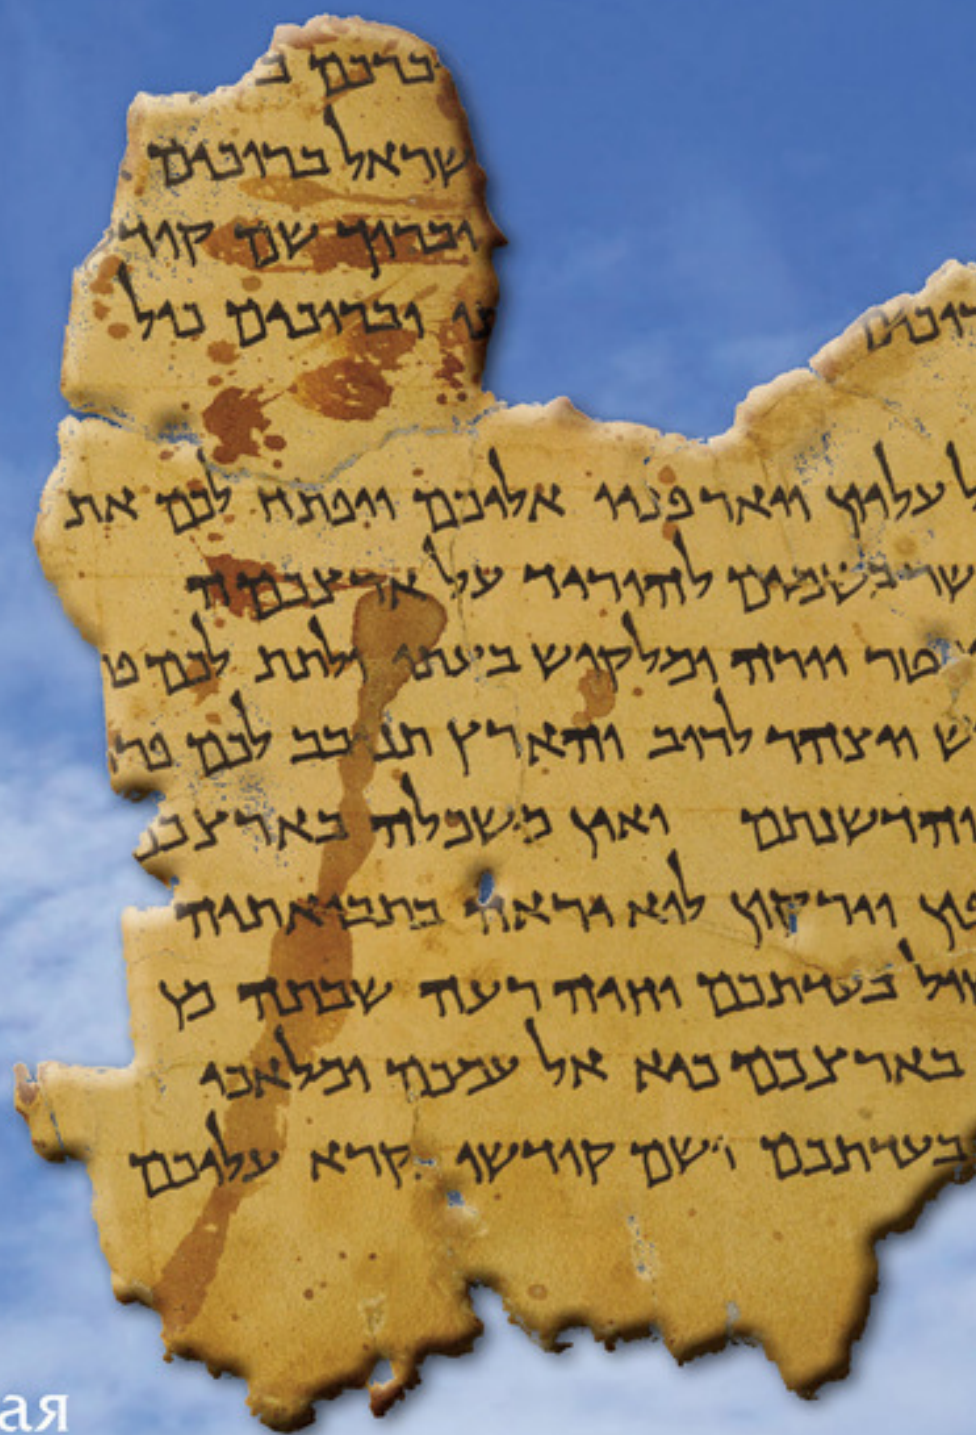 יברכם ב
שראל ברוכים
וברוך שם קוד
רוכים יו וברוכים כול
ל עליון ויאר פניו אליכם ויפתח לכם את
שר בשמים להוריד על ארצכמה
טר יורה ומלקוש בעתו ולתת לכם פ
ש ויצהר לרוב והארץ תנובב לכם פרי
והדשנתם ואין משכלה בארצכ
פון וירקון לוא יראה בתבואתיה
ול בעדתכם וחיה רעה שבתה מן
בארצכם כיא אל עמכם ומלאכי
בעדתכם ושם קודשו נקרא עליכם
ая